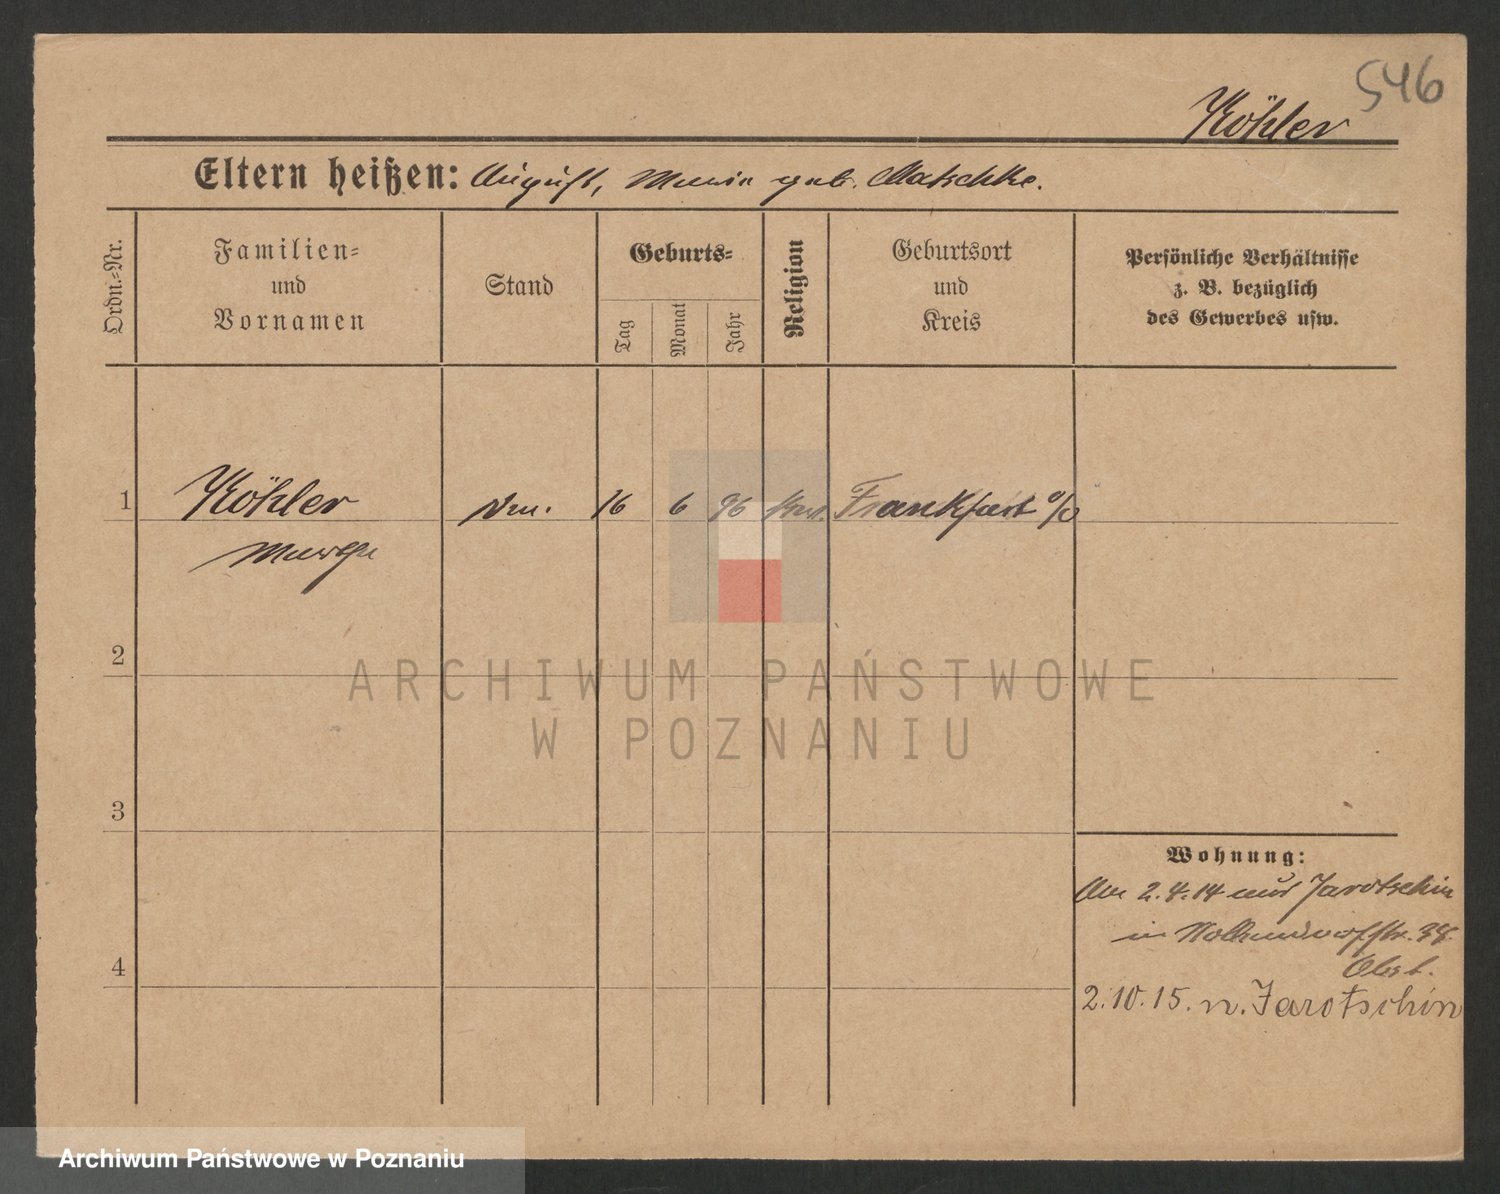 546
Köhler
Eltern heißen: August, Maria geb. Matschke.
Ordn.=Nr.
Familien=
und
Vornamen
Stand
Geburts=
Tag
Monat
Jahr
Religion
Geburtsort
und
Kreis
Persönliche Verhältnisse
z. B. bezüglich
des Gewerbes usw.
1
Köhler 16 6 96 Frankfurt a/O
2
ARCHIWUM PAŃSTWOWE
W POZNANIU
3
Wohnung:
2.4.14 aus Jarotschin
in
4
2.10.15. n. Jarotschin
Archiwum Państwowe w Poznaniu